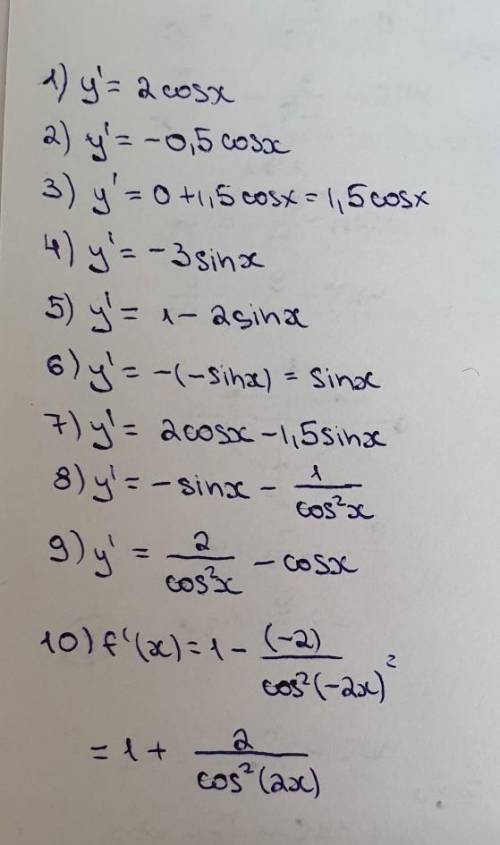 1) y' = 2cosx
2) y' = -0,5cosx
3) y' = 0+1,5cosx = 1,5cosx
4) y' = -3sinx
5) y' = 1-2sinx
6) y' = -(-sinx) = sinx
7) y' = 2cosx-1,5sinx
8) y' = -sinx - 1/cos²x
9) y' = 2/cos²x - cosx
10) f'(x) = 1 - (-2)/cos²(-2x)²
= 1 + 2/cos²(2x)